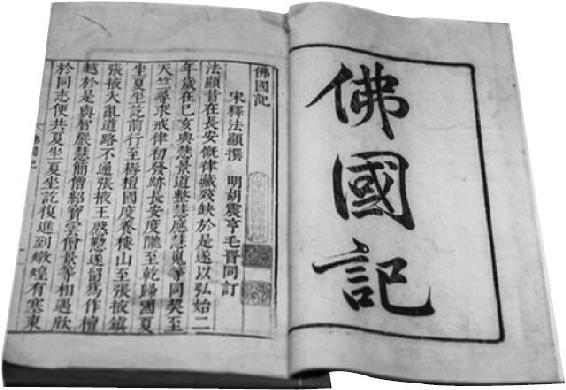 佛國記
佛國記
宋釋法顯撰　明胡震亨毛晉同訂
法顯昔在長安慨律藏殘缺於是遂以弘始二
年歲在己亥與慧景道整慧應慧嵬等同契至
天竺尋求戒律初發跡長安度隴至乾歸國夏
坐夏坐訖前行至耨檀國度養樓山至張掖鎮
張掖大亂道路不通張掖王殷懃遂留爲作檀
越於是與智嚴慧簡僧紹寶雲僧景等相遇欣
於同志便共夏坐夏坐訖復進到燉煌有塞東